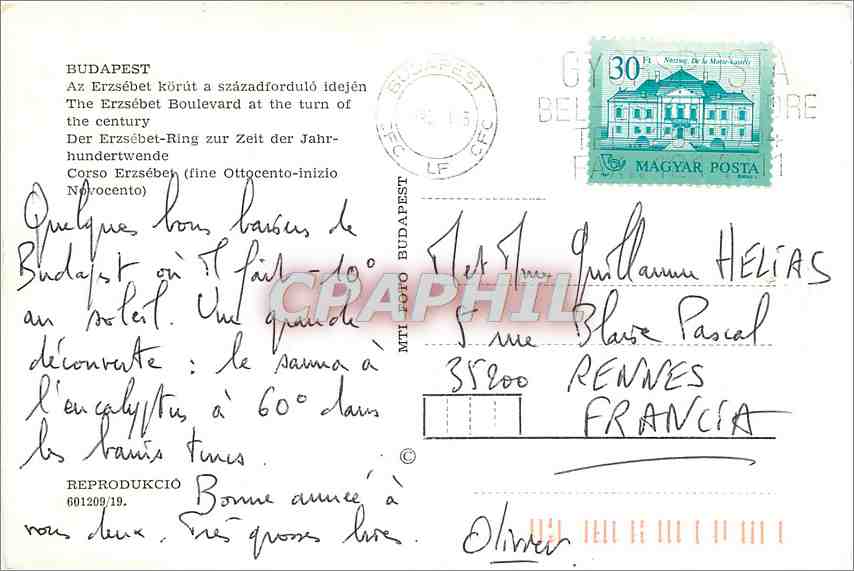 BUDAPEST
Az Erzsébet körút a századforduló idején
The Erzsébet Boulevard at the turn of
the century
Der Erzsébet-Ring zur Zeit der Jahr-
hundertwende
Corso Erzsébet (fine Ottocento-inizio
Novocento)
Quelques bons baisers de
Budapest où il fait -10°
au soleil. Une grande
découverte : le sauna à
l'eucalyptus à 60° dans
les bains turcs.
Bonne année à
vous deux. Très grosses bises.
Olivier
REPRODUKCIÓ
601209/19.
MTI FOTO BUDAPEST
©
BUDAPEST
CFC LF CFC
30 Ft
Noszlop, De la Motte-kastély
MAGYAR POSTA
M et Mme Guillaume HELIAS
5 rue Blaise Pascal
35200 RENNES
FRANCIA
CPAPHIL